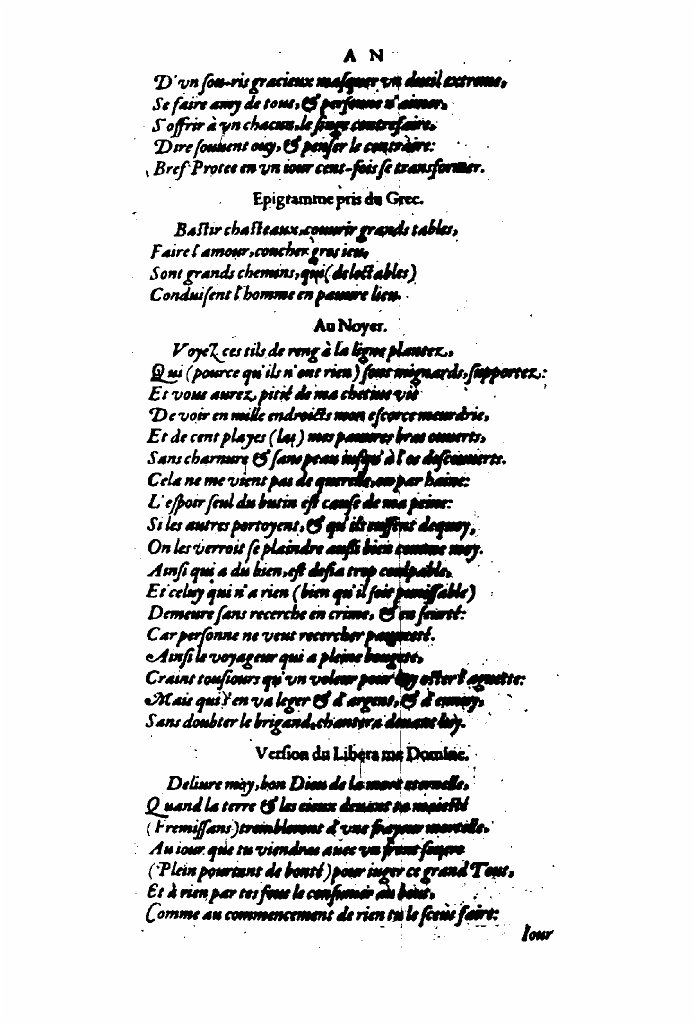 A N
D'vn sou-ris gracieux masquer vn dueil extreme,
Se faire amy de tous, & personne n'aimer,
S'offrir à vn chacun, le singe contrefaire,
Dire souuent ouy, & penser le contraire:
Bref Protee en vn iour cent-fois se transformer.
Epigramme pris du Grec.
Bastir chasteaux, couurir grands tables,
Faire l'amour, coucher gros ieu,
Sont grands chemins, qui (delectables)
Conduisent l'homme en pauure lieu.
Au Noyer.
Voyez ces tils de reng à la ligne plantez,
Qui (pource qu'ils n'ont rien) sont mignards, supportez:
Et vous aurez pitié de ma chetiue vie
De voir en mille endroicts mon escorce meurdrie,
Et de cent playes (las) mes pauures bras ouuerts,
Sans charnure & sans peau iusqu'à l'os descouuerts.
Cela ne me vient pas de querelle, ou par haine:
L'espoir seul du butin est cause de ma peine:
Si les autres portoyent, & qu'ils eussent dequoy,
On les verroit se plaindre aussi bien comme moy.
Ainsi qui a du bien, est desia trop coulpable,
Et celuy qui n'a rien (bien qu'il soit punissable)
Demeure sans recerche en crime, & en seurté:
Car personne ne veut recercher pauureté.
Ainsi le voyageur qui a pleine bougete,
Craint tousiours qu'vn voleur pour luy oster l'aguette:
Mais qui s'en va leger & d'argent, & d'ennuy,
Sans doubter le brigand, chantera deuant luy.
Version du Libera me Domine.
Deliure moy, bon Dieu de la mort eternelle,
Quand la terre & les cieux deuant ta maiesté
(Fremissans) trembleront d'vne frayeur mortelle,
Au iour que tu viendras auec vn front seuere
(Plein pourtant de bonté) pour iuger ce grand Tout,
Et à rien par tes feus le consumer au bout,
Comme au commencement de rien tu le sceus faire:
Iour